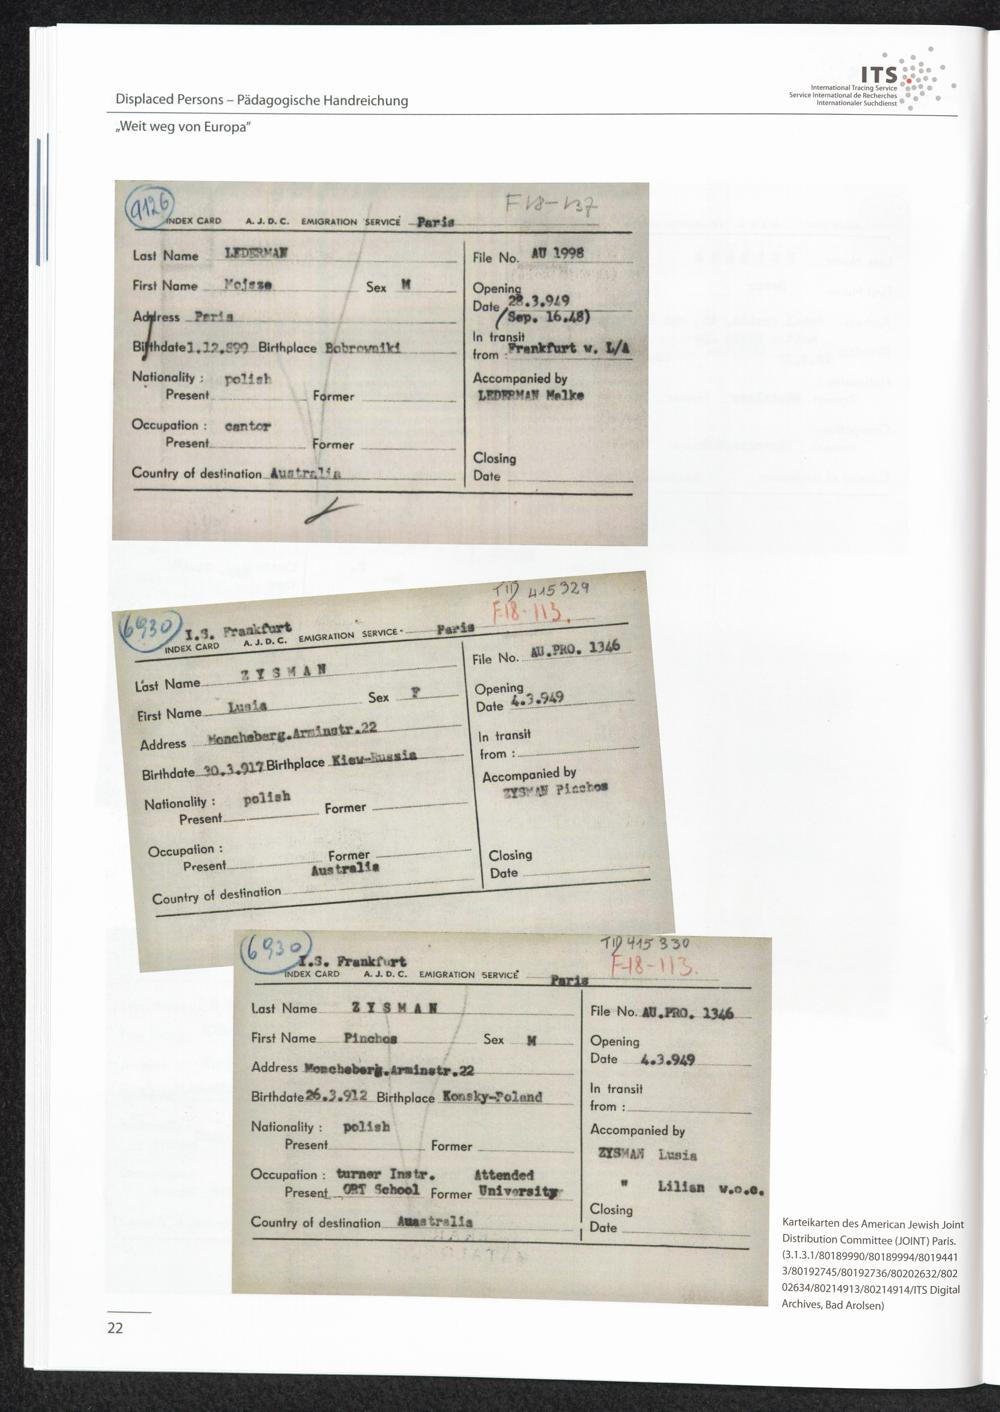 Displaced Persons – Pädagogische Handreichung
„Weit weg von Europa“
ITS
International Tracing Service
Service International de Recherches
Internationaler Suchdienst
9126
F18-137
INDEX CARD A. J. D. C. EMIGRATION SERVICE Paris
Last Name LEDERMAN
First Name Mojsze Sex M
Address Paris
Birthdate 1.12.899 Birthplace Bobrowniki
Nationality : polish
Present Former
Occupation : cantor
Present Former
Country of destination Australia
File No. AU 1998
Opening
Date 28.3.949
(Sep. 16.48)
In transit
from : Frankfurt w. L/A
Accompanied by
LEDERMAN Malke
Closing
Date
6930
TID 415329
F18-113.
I.S. Frankfurt
INDEX CARD A. J. D. C. EMIGRATION SERVICE Paris
Last Name ZYSMAN
First Name Lusia Sex F
Address Moncheberg.Arminstr.22
Birthdate 30.3.917 Birthplace Kiew-Russia
Nationality : polish
Present Former
Occupation :
Present Former
Australia
Country of destination
File No. AU.PRO. 1346
Opening
Date 4.3.949
In transit
from :
Accompanied by
ZYSMAN Pinchos
Closing
Date
6930
TID 415330
F18-113.
I.S. Frankfurt
INDEX CARD A. J. D. C. EMIGRATION SERVICE Paris
Last Name ZYSMAN
First Name Pinchos Sex M
Address Moncheberg.Arminstr.22
Birthdate 26.3.912 Birthplace Konsky-Poland
Nationality : polish
Present Former
Occupation : turner Instr. Attended
Present ORT School Former University
Country of destination Auastralia
File No. AU.PRO. 1346
Opening
Date 4.3.949
In transit
from :
Accompanied by
ZYSMAN Lusia
" Lilian w.o.c.
Closing
Date
Karteikarten des American Jewish Joint
Distribution Committee (JOINT) Paris.
(3.1.3.1/80189990/80189994/8019441
3/80192745/80192736/80202632/802
02634/80214913/80214914/ITS Digital
Archives, Bad Arolsen)
22